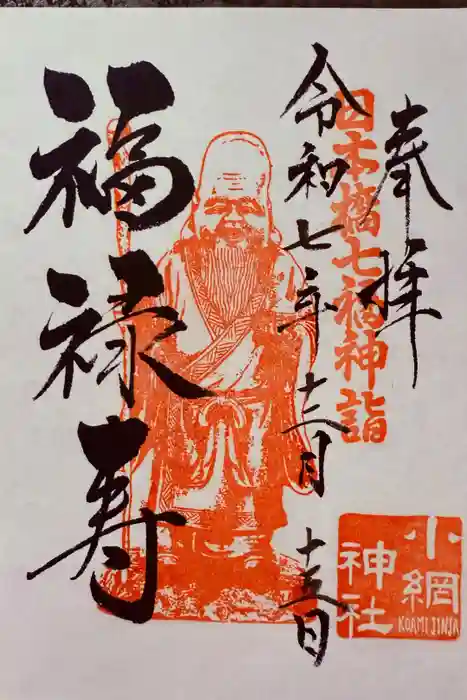 奉拝
日本橋七福神詣
令和七年十二月十五日
福禄寿
小網
神社
KOAMI JINJA